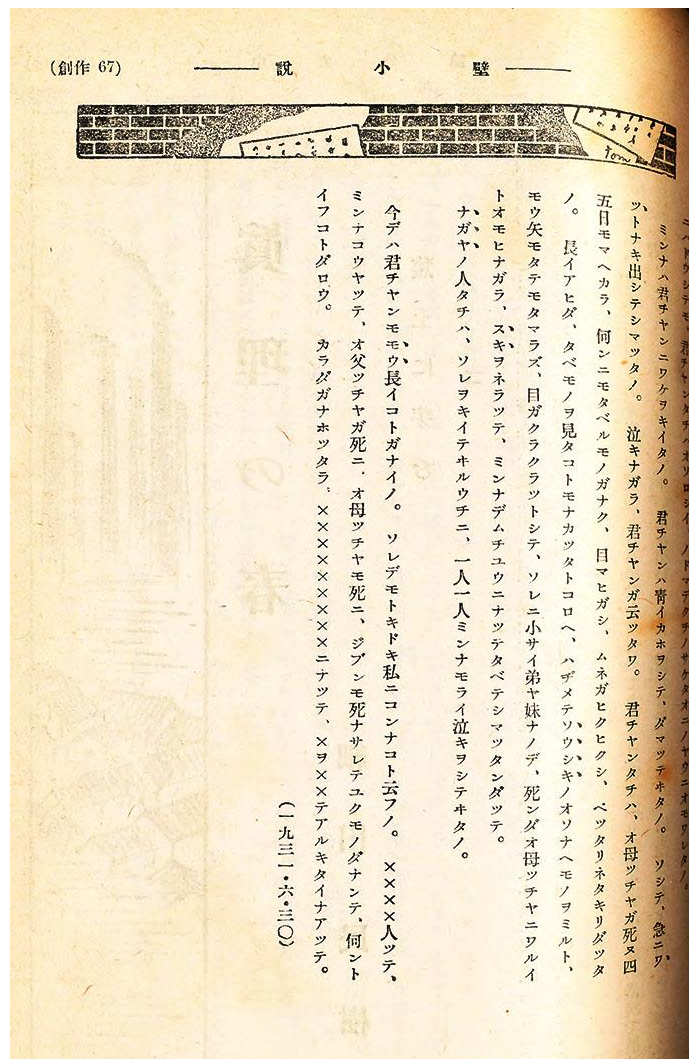 (創作 67)
壁小説
tom
ミンナハ君チヤンニワケヲキイタノ。 君チヤンハ青イカホヲシテ、ダマツテヰタノ。 ソシテ、急ニワ
ツトナキ出シテシマツタノ。 泣キナガラ、君チヤンガ云ツタワ。 君チヤンタチハ、オ母ツチヤガ死ヌ四
五日モマヘカラ、何ンニモタベルモノガナク、目マヒガシ、ムネガヒクヒクシ、ベツタリネタキリダツタ
ノ。 長イアヒダ、タベモノヲ見タコトモナカツタトコロヘ、ハヂメテソウシキノオソナヘモノヲミルト、
モウ矢モタテモタマラズ、目ガクラクラツトシテ、ソレニ小サイ弟ヤ妹ナノデ、死ンダオ母ツチヤニワルイ
トオモヒナガラ、スキヲネラツテ、ミンナデムチユウニナツテタベテシマツタンダツテ。
ナガヤノ人タチハ、ソレヲキイテヰルウチニ、一人一人ミンナモライ泣キヲシテヰタノ。
今デハ君チヤンモモウ長イコトガナイノ。 ソレデモトキドキ私ニコンナコト云フノ。 ××××人ツテ、
ミンナコウヤツテ、オ父ツチヤガ死ニ、オ母ツチヤモ死ニ、ジブンモ死ナサレテユクモノダナンテ、何ント
イフコトダロウ。 カラダガナホツタラ、××××××××××ニナツテ、×ヲ××テアルキタイナアツテ。
(一九三一・六・三〇)